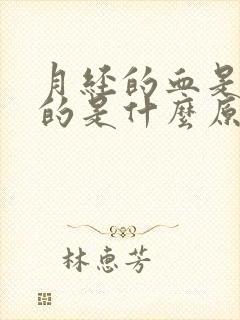 月经的血是
的是什麼原
林惠芳